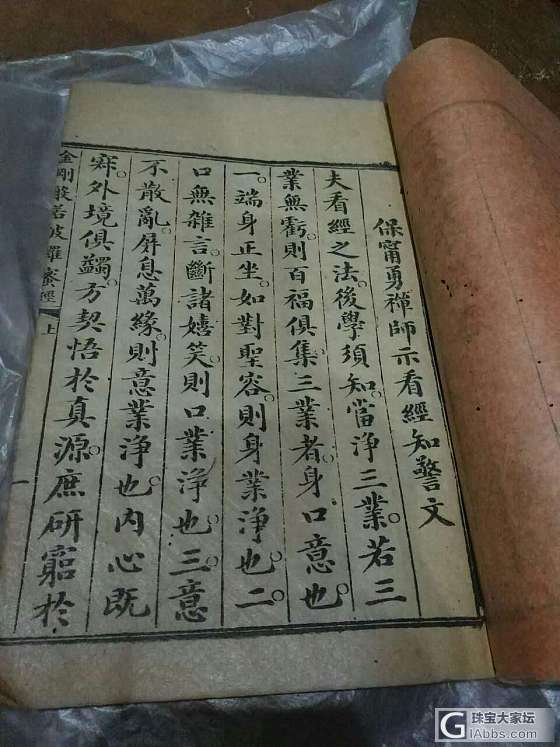 保甯勇禪師示看經知警文
夫看經之法。後學須知。當淨三業。若三
業無虧。則百福俱集。三業者。身口意也。
一端身正坐。如對聖容。則身業淨也。二
口無雜言。斷諸嬉笑。則口業淨也。三意
不散亂。屏息萬緣。則意業淨也。內心旣
寂。外境俱蠲。方契悟於眞源。庶研窮於
金剛般若波羅蜜經 上 一
G 珠宝大家坛
iAbbs.com